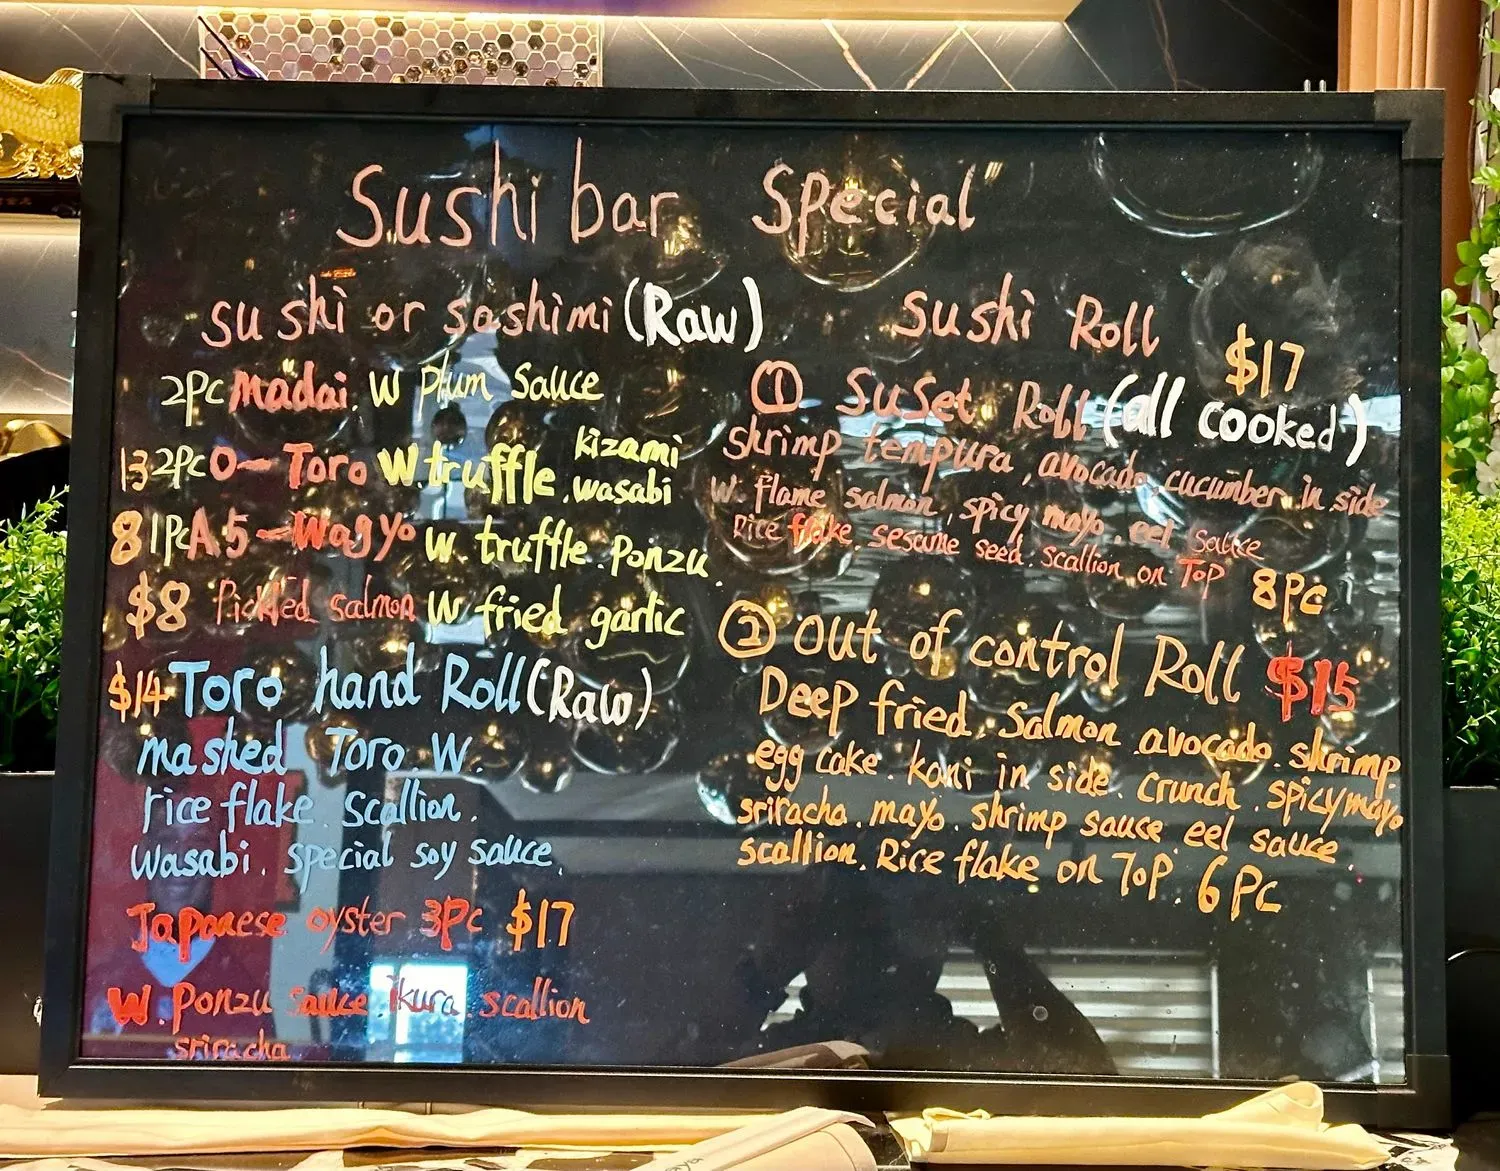 Sushi bar Special
sushi or sashimi (Raw)
2Pc madai. W Plum Sauce
13 2Pc O-Toro W. truffle. kizami wasabi
8 1Pc A.5-Wagyo W. truffle. Ponzu.
$8 Pickled salmon W fried garlic
$14 Toro hand Roll (Raw)
mashed Toro. W.
rice flake. Scallion.
Wasabi. special soy sauce.
Japanese oyster 3Pc $17
W. Ponzu sauce. ikura. scallion
sriracha
Sushi Roll
$17
① SuSet Roll (all cooked)
shrimp tempura, avocado, cucumber in side
W. flame salmon, spicy mayo. eel sauce
Rice flake. sesame seed. scallion on Top
8Pc
② out of control Roll $15
Deep fried. Salmon avocado. shrimp.
egg cake. kani in side. crunch. spicy mayo
sriracha. mayo. shrimp sauce. eel sauce.
scallion. Rice flake on ToP. 6Pc